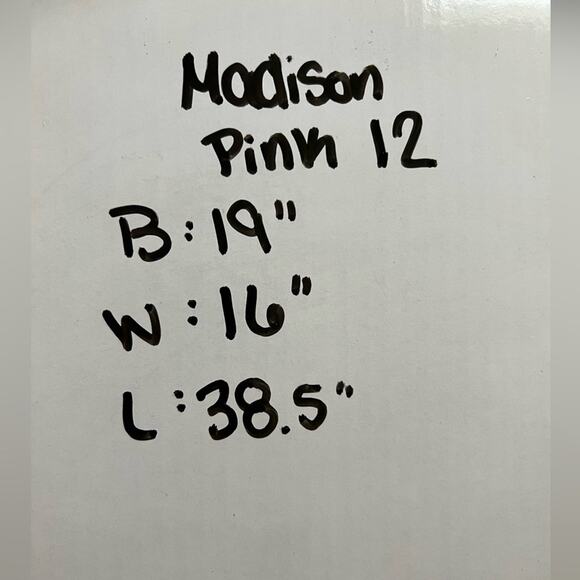 Madison
Pink 12
B: 19"
W: 16"
L: 38.5"